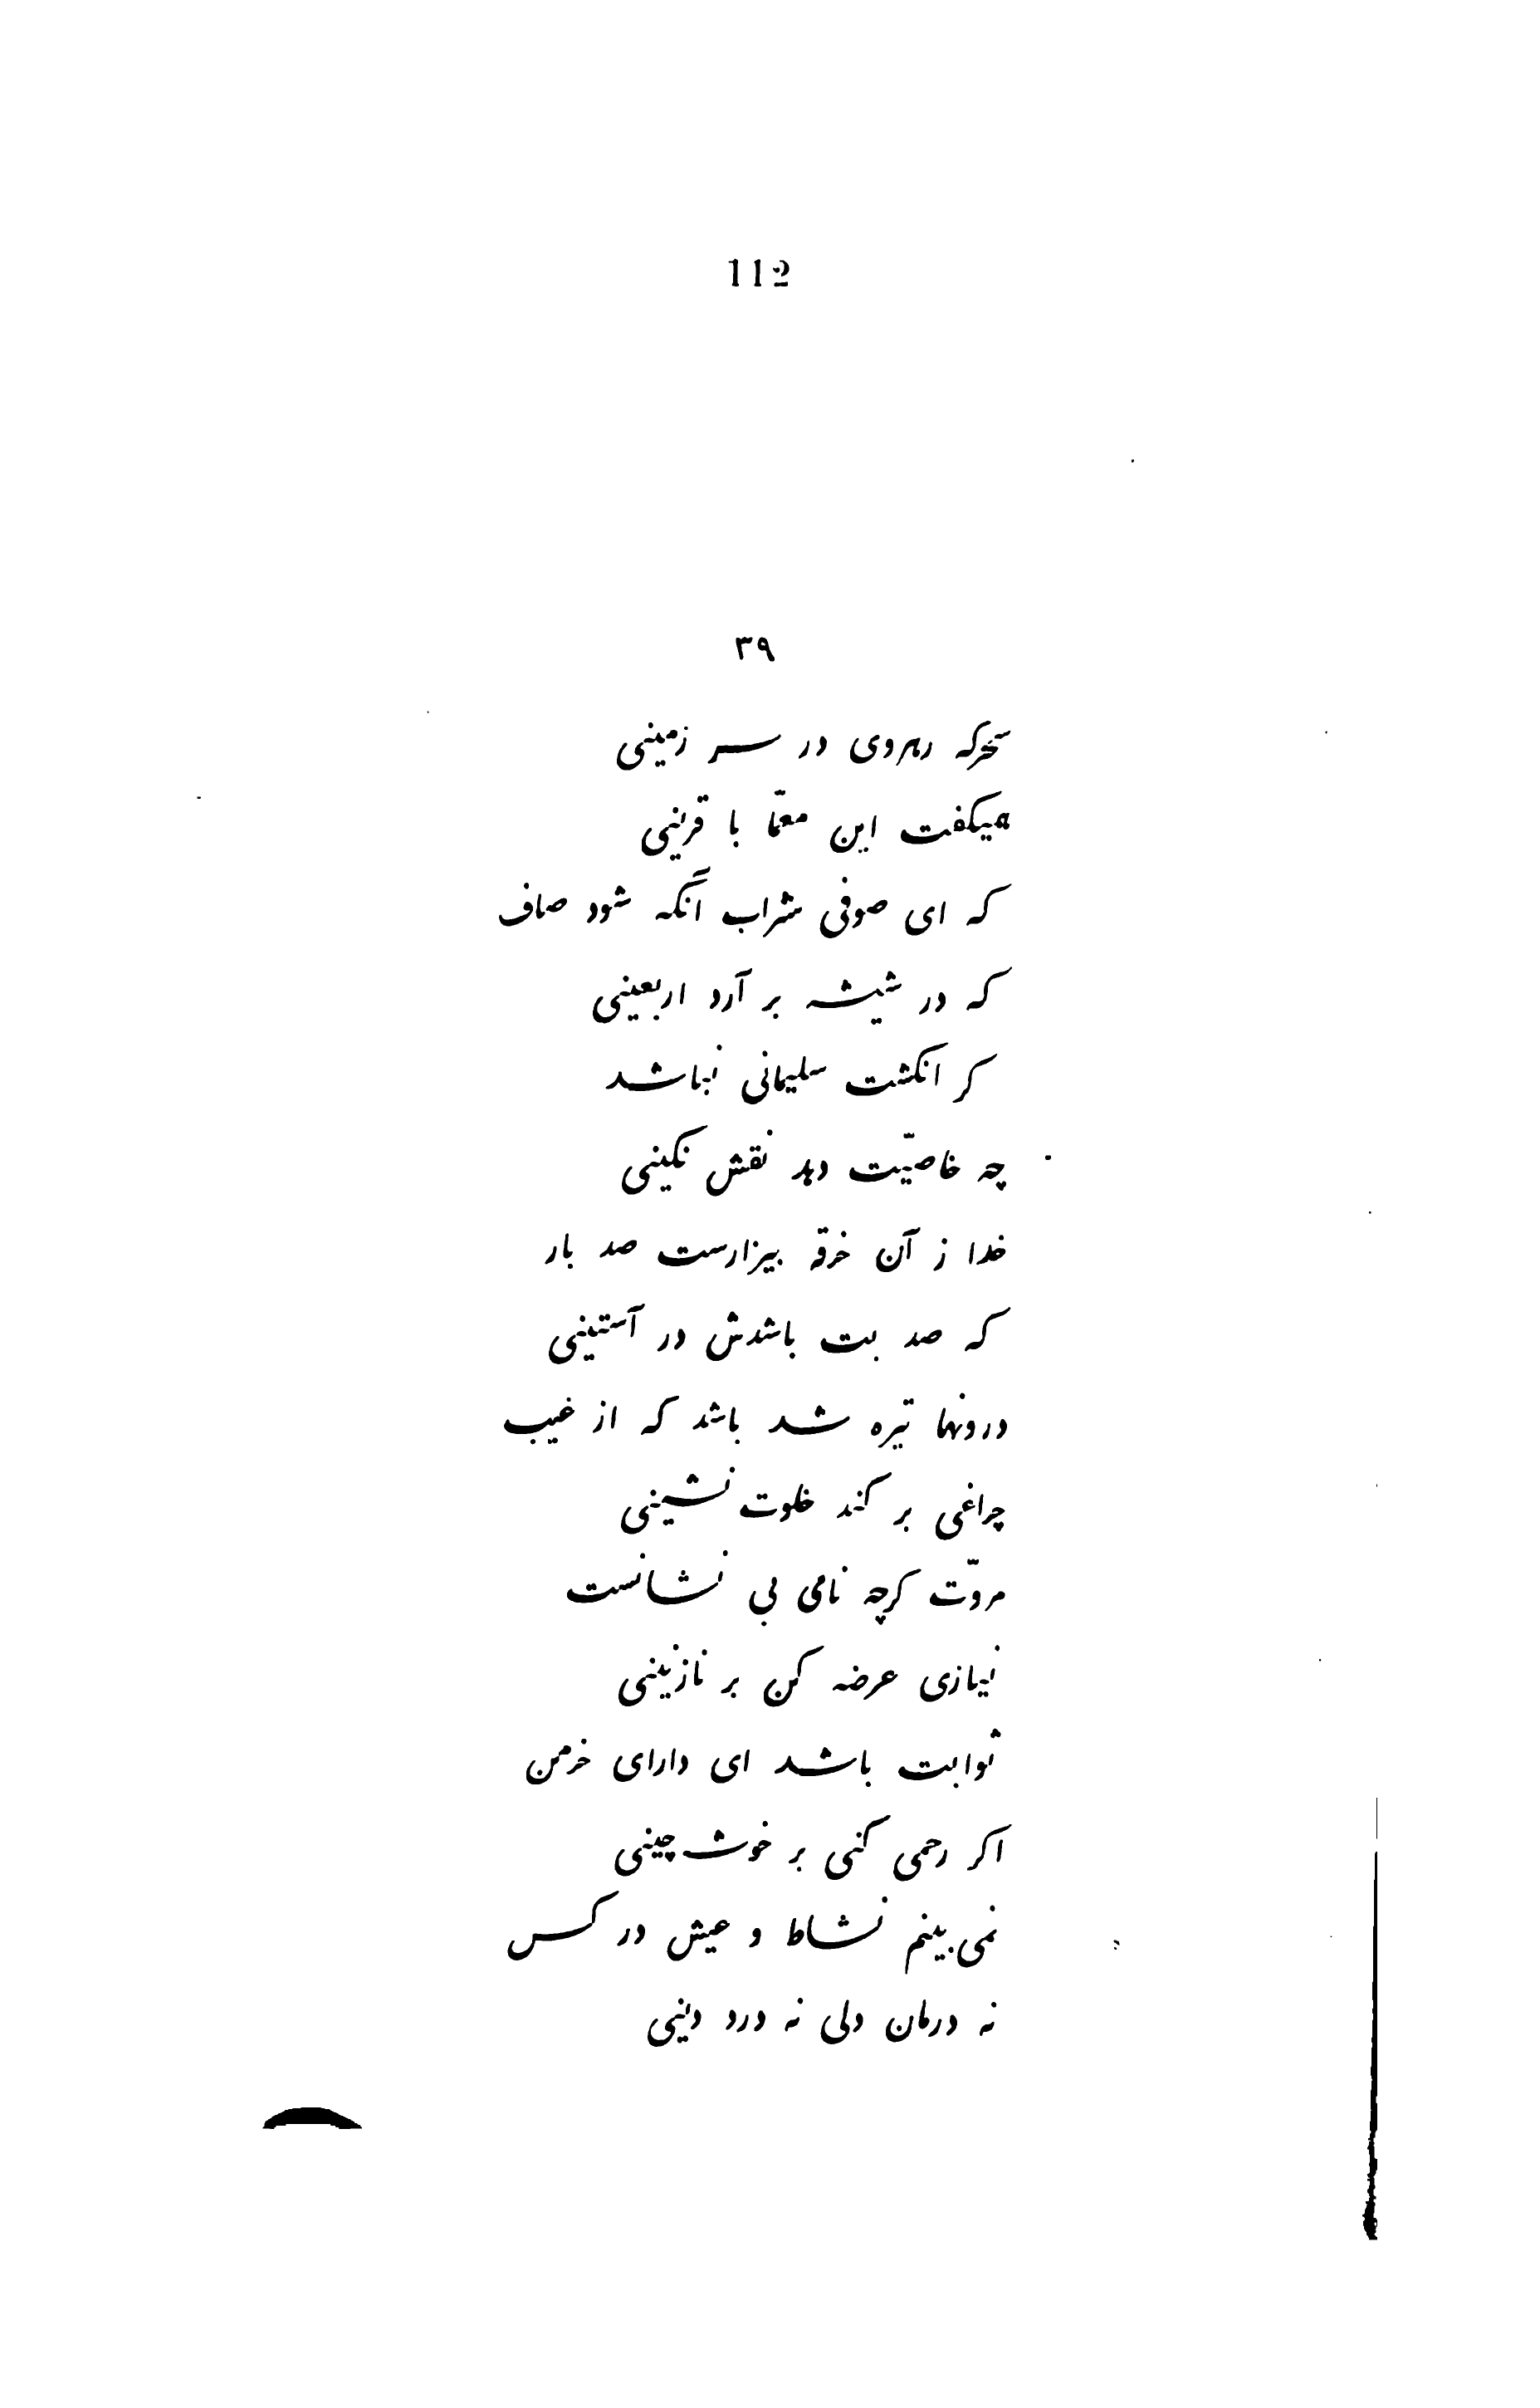 112
٣٩
سحرکه رهروی در سر زمینی
همیکفت این معمّا با قرینی
که ای صوفی شراب آنگه شود صاف
که در شیشه بر آرد اربعینی
کر انکشت سلیمانی نباشد
چه خاصیّت دهد نقش نکینی
خدا ز آن خرقه بیزارست صد بار
که صد بت باشدش در آستینی
درونها تیره شد باشد که از غیب
چراغی بر کند خلوت نشینی
مروّت کرچه نامی بی نشانست
نیازی عرضه کن بر نازنینی
ثوابت باشد ای دارای خرمن
اکر رحمی کنی بر خوشه چینی
نمی بینم نشاط و عیش در کس
نه درمان دلی نه درد دینی